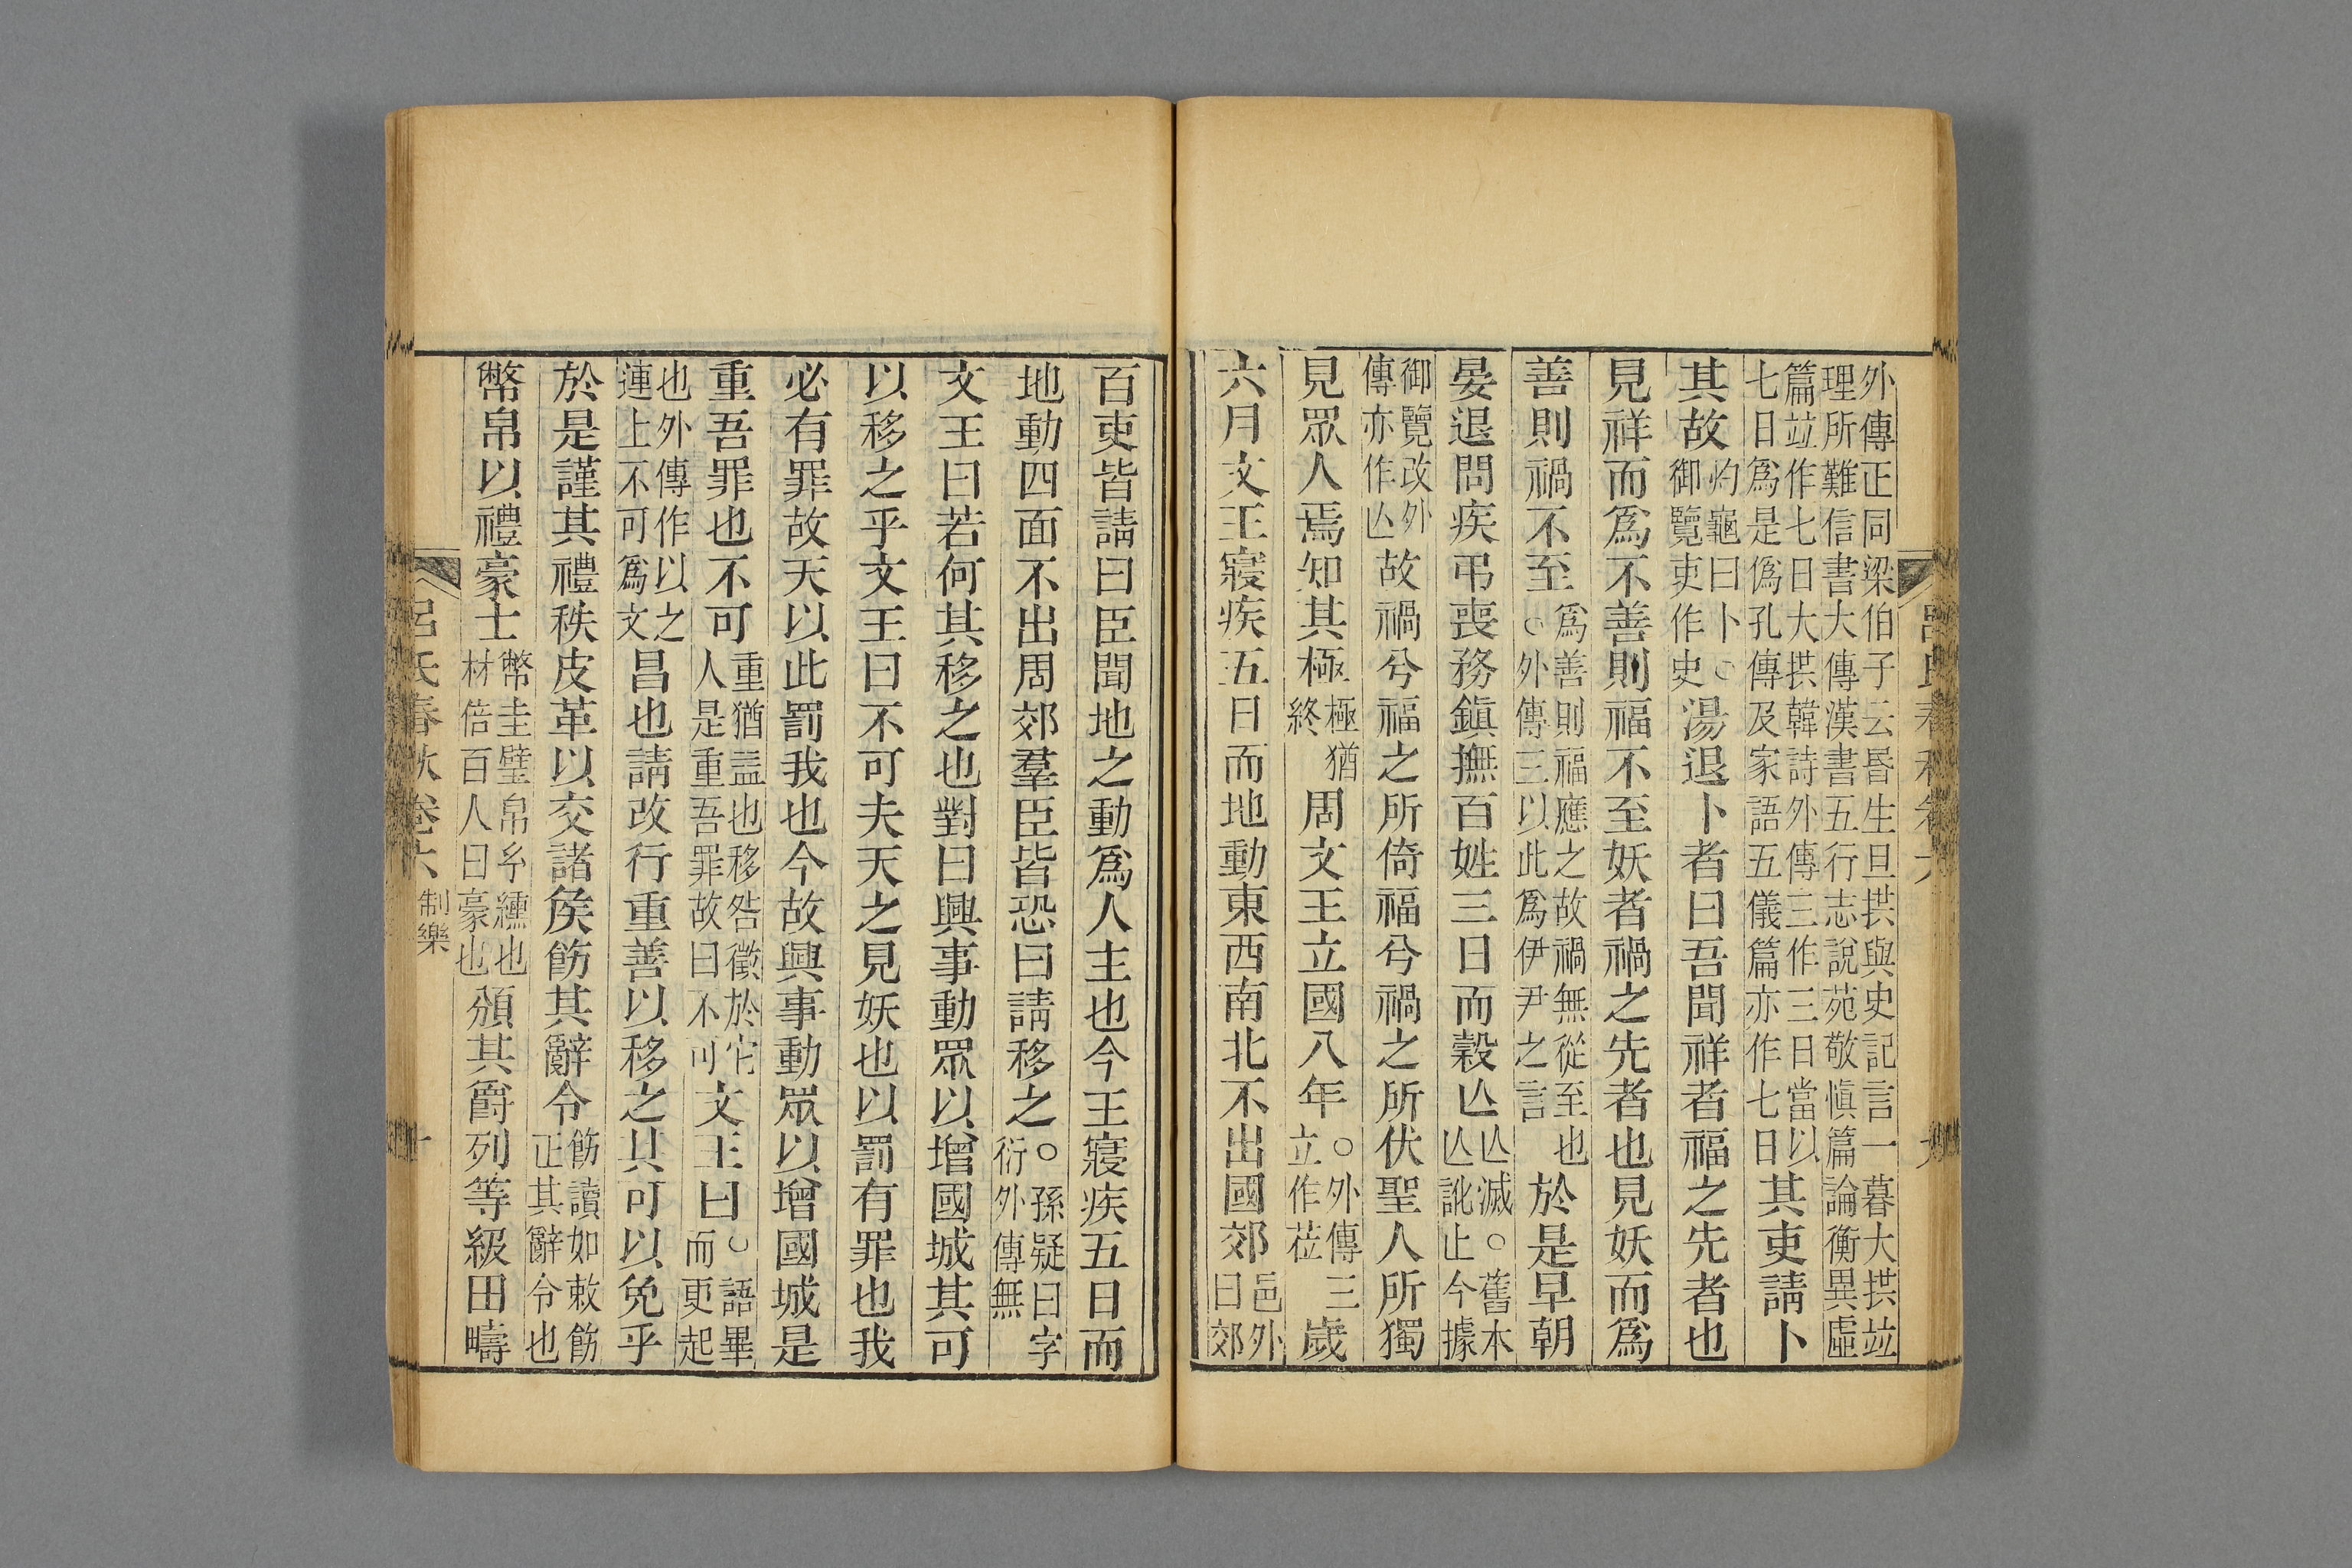 外傳正同梁伯子云昬生旦拱與史記言一暮大拱竝
理所難信書大傳漢書五行志說苑敬慎篇論衡異虛
篇竝作七日大拱韓詩外傳三作三日當以
七日爲是僞孔傳及家語五儀篇亦作七日其吏請卜
其故灼龜曰卜○御覽吏作史湯退卜者曰吾聞祥者福之先者也
見祥而爲不善則福不至妖者禍之先者也見妖而爲
善則禍不至爲善則福應之故禍無從至也○外傳三以此爲伊尹之言於是早朝
晏退問疾弔喪務鎭撫百姓三日而穀亾亾滅○舊本亾訛止今據
御覽改外傳亦作亾故禍兮福之所倚福兮禍之所伏聖人所獨
見眾人焉知其極極猶終周文王立國八年○外傳三立作莅歲
六月文王寢疾五日而地動東西南北不出國郊邑外曰郊
呂氏春秋卷六
九
百吏皆請曰臣聞地之動爲人主也今王寢疾五日而
地動四面不出周郊羣臣皆恐曰請移之○孫疑曰字衍外傳無
文王曰若何其移之也對曰興事動眾以增國城其可
以移之乎文王曰不可夫天之見妖也以罰有罪也我
必有罪故天以此罰我也今故興事動眾以增國城是
重吾罪也不可重猶益也移咎徵於它人是重吾罪故曰不可文王曰○語畢而更起
也外傳作以之連上不可爲文昌也請改行重善以移之其可以免乎
於是謹其禮秩皮革以交諸矦飭其辭令飭讀如敕飭正其辭令也
幣帛以禮豪士幣圭璧帛玄纁也材倍百人曰豪也頒其爵列等級田疇
呂氏春秋卷六
制樂
十